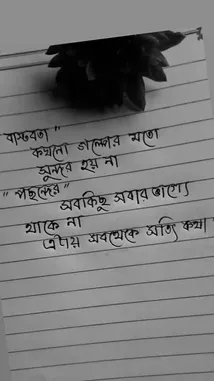 বাস্তবতা"
কখনো গল্পের মতো
সুন্দর হয় না
"পছন্দের"
সবকিছু সবার ভাগ্যে
থাকে না
এটাই সবথেকে সত্যি কথা